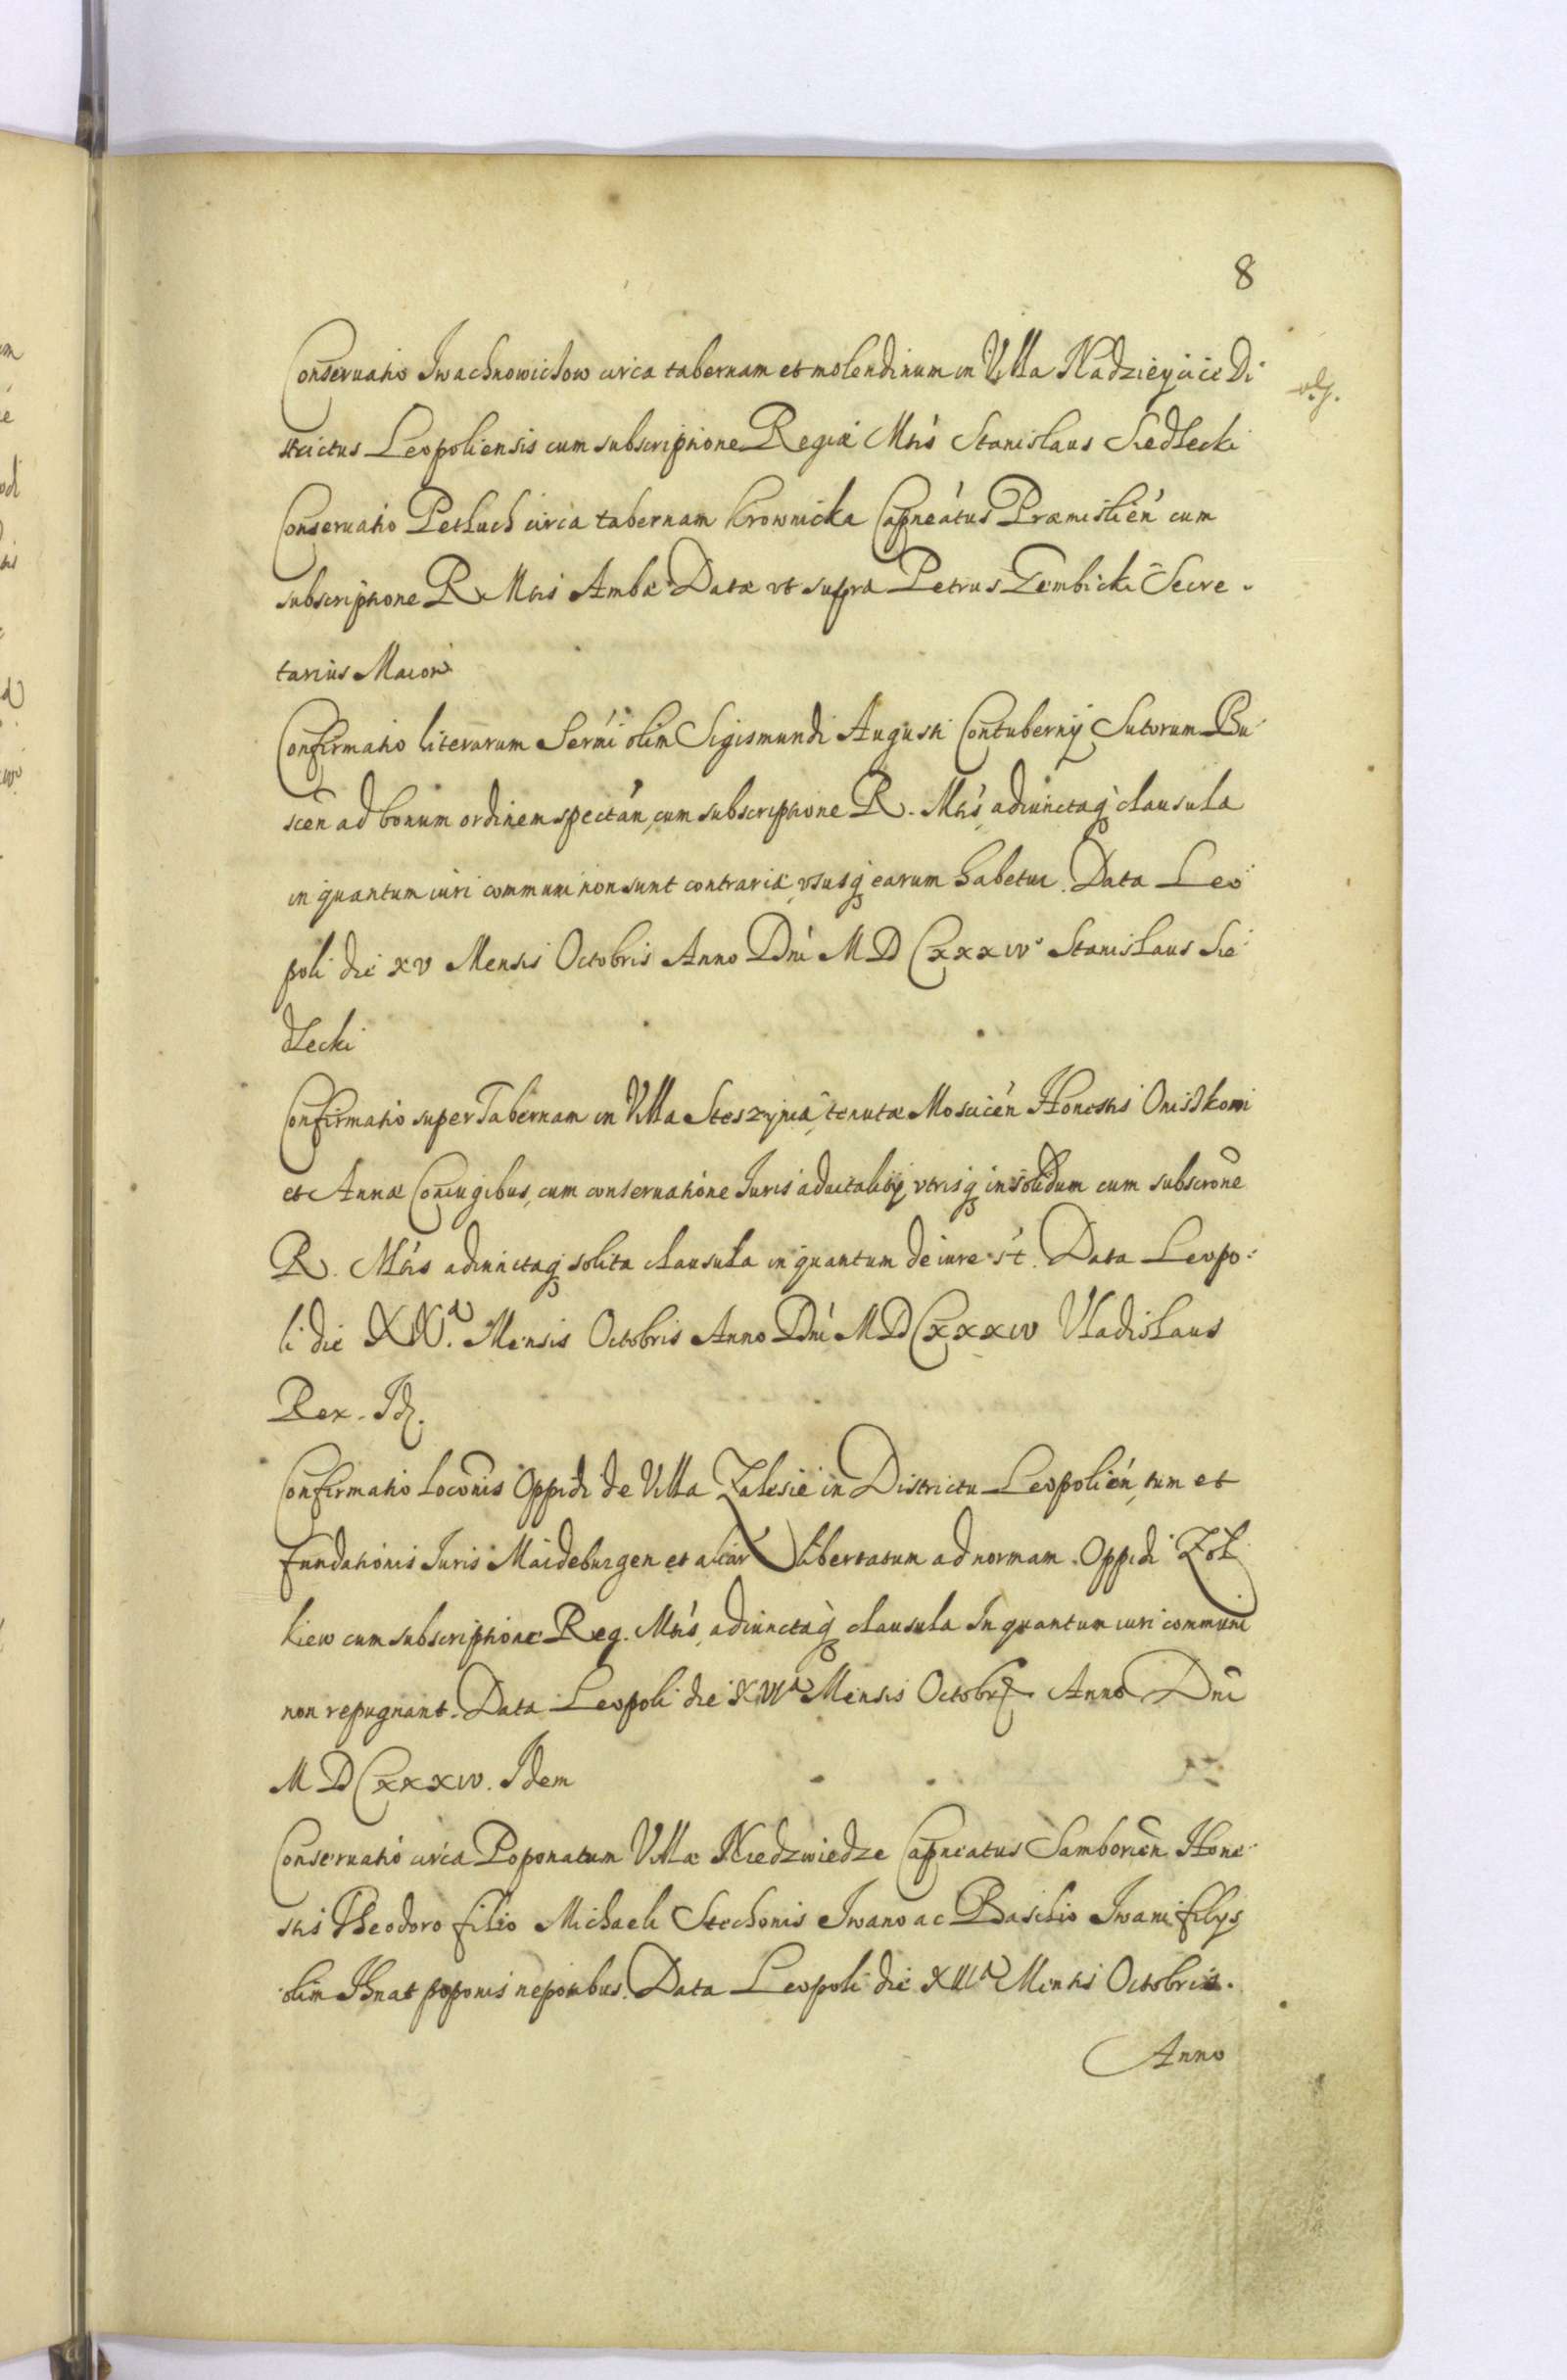 8
Conseruatio Iwachnowichow circa tabernam et molendinum in Villa Nadzieycice Di
strictus Leopoliensis cum subscriptione Regiae Mtis Stanislaus Siedlecki
Conseruatio Petluch circa tabernam krownicka Capneatus Præmislien cum
subscriptione R Mtis Ambæ Datæ vt supra Petrus Gembicki Secre
tarius Maior
Confirmatio literarum Sermi olim Sigismundi Augusti Contubernij Sutorum Bu
scen ad bonum ordinem spectan, cum subscriptione R. Mtis, adiunctaq clausula
in quantum iuri communi non sunt contrariæ, vsusq earum habetur. Data Leo
poli die xv Mensis Octobris Anno Dni MDCxxxiv Stanislaus Sie
dlecki
Confirmatio super Tabernam in Villa tenutæ Moscicen Honestis Oniskowi
et Annæ Coniugibus, cum conseruatione Iuris aduitalitij vtrisq insolidum cum subscrone
R. Mtis adiunctaq solita clausula in quantum de iure st. Data Leopo
li die Mensis Octobris Anno Dni MDCxxxiv Vladislaus
Rex. Id.
Confirmatio loconis Oppidi de Villa Zalesie in Districtu Leopolien, tum et
fundationis Iuris Maideburgen et aliar libertatum ad normam Oppidi Zol
kiew cum subscriptione Reg. Mtis, adiunctaq clausula In quantum iuri communi
non repugnant. Data Leopoli die Mensis Octobr Anno Dni
MDCxxxiv. Idem
Conseruatio circa Poponatum Villæ Niedzwiedze Capneatus Samborien Hone
stis Theodoro filio Michaeli Stechonis Iwano ac Baschio Iwani filys
olim Ihnat poponis nepotibus. Data Leopoli die Mensis Octobris.
Anno